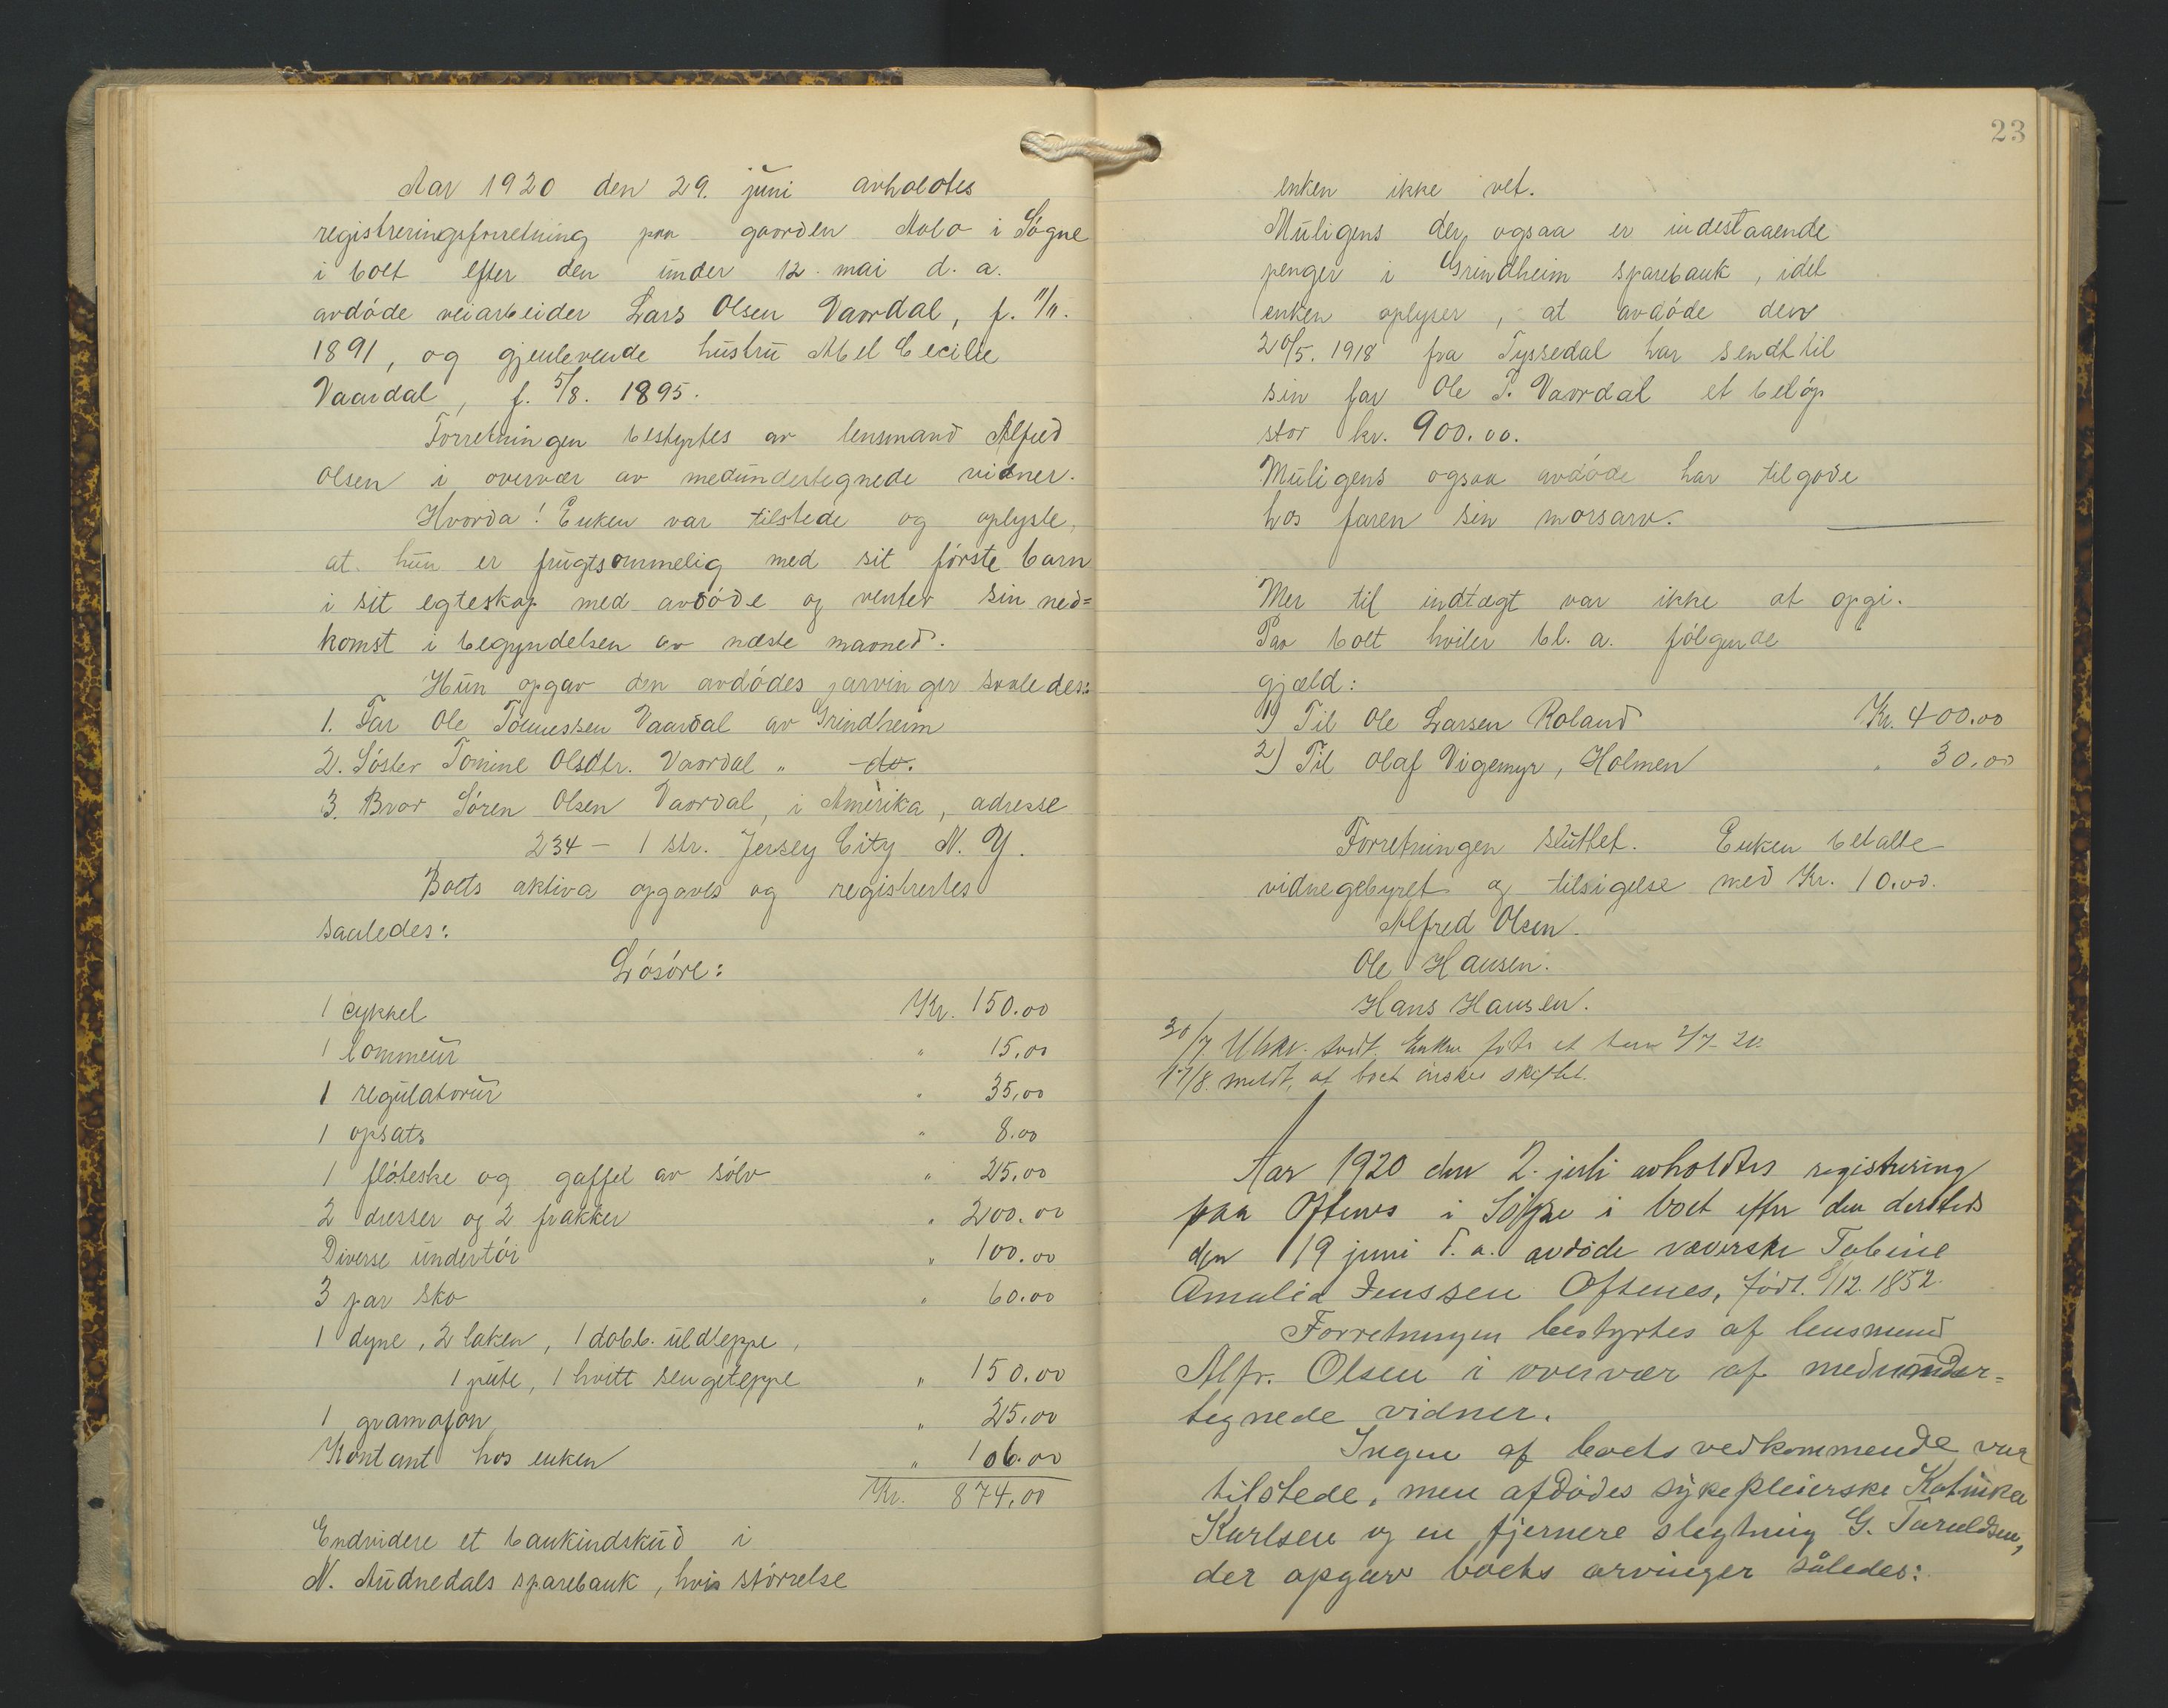 Aar 1920 den 29. juni avholdtes
registreringsforretning paa gaarden Aalo i Søgne
i boet efter den under 12. mai d. a.
avdøde veiarbeider Lars Olsen Vaardal, f. 11/11.
1891, og gjenlevende hustru Abel Cecilie
Vaardal, f. 5/8. 1895.
Forretningen bestyrtes av lensmand Alfred
Olsen i overvær av medundertegnede vidner.
Hvorda! Enken var tilstede og oplyste,
at hun er frugtsommelig med sit første barn
i sit egteskap med avdøde og venter sin ned=
komst i begyndelsen av næste maaned.
Hun opgav den avdødes arvinger saaledes:
1. Far Ole Tønnessen Vaardal av Grindheim
2. Søster Tomine Olsdtr. Vaardal " do.
3. Bror Søren Olsen Vaardal, i Amerika, adresse
234 - 1 str. Jersey City N. Y.
Boets aktiva opgaves og registrertes
saaledes:
Løsøre:
1 cykkel Kr. 150.00
1 lommeur " 15.00
1 regulatorur " 35.00
1 opsats " 8.00
1 fløteske og gaffel av sølv " 25.00
2 dresser og 2 frakker " 200.00
Diverse undertøi " 100.00
3 par sko " 60.00
1 dyne, 2 laken, 1 dobb. uldteppe,
1 pute, 1 hvitt sengeteppe " 150.00
1 gramofon " 25.00
Kontant hos enken " 106.00
Kr. 874.00
Endvidere et bankindskud i
N. Audnedals sparebank, hvis størrelse
23
enken ikke vet.
Muligens der ogsaa er indestaaende
penger i Grindheim sparebank, idet
enken oplyser, at avdøde den
20/5. 1918 fra Tyssedal har sendt til
sin far Ole T. Vaardal et beløp
stor kr. 900.00.
Muligens ogsaa avdøde har tilgode
hos faren sin morsarv.
Mer til indtægt var ikke at opgi.
Paa boet hviler bl. a. følgende
gjæld:
1) Til Ole Larsen Roland Kr. 400.00
2) Til Olaf Vigemyr, Holmen " 30.00
Forretningen sluttet. Enken betalte
vidnegebyret og tilsigelse med Kr. 10.00.
Alfred Olsen.
Ole Hansen.
Hans Hansen.
30/7 Utskr. sendt. Enken født et barn 2/7-20.
17/8. meldt, at boet ønskes skiftet.
Aar 1920 den 2. juli avholdtes registrering
paa Oftenes i Søgne i boet efter den dersteds
den 19 juni d. a. avdøde væverske Tobine
Amalia Jenssen Oftenes, født. 8/12. 1852.
Forretningen bestyrtes af lensmand
Alfr. Olsen i overvær af medunder=
tegnede vidner.
Ingen af boets vedkommende var
tilstede, men afdødes sykepleierske Katinka
Karlsen og en fjernere slegtning G. Taraldsen,
der opgav boets arvinger således: